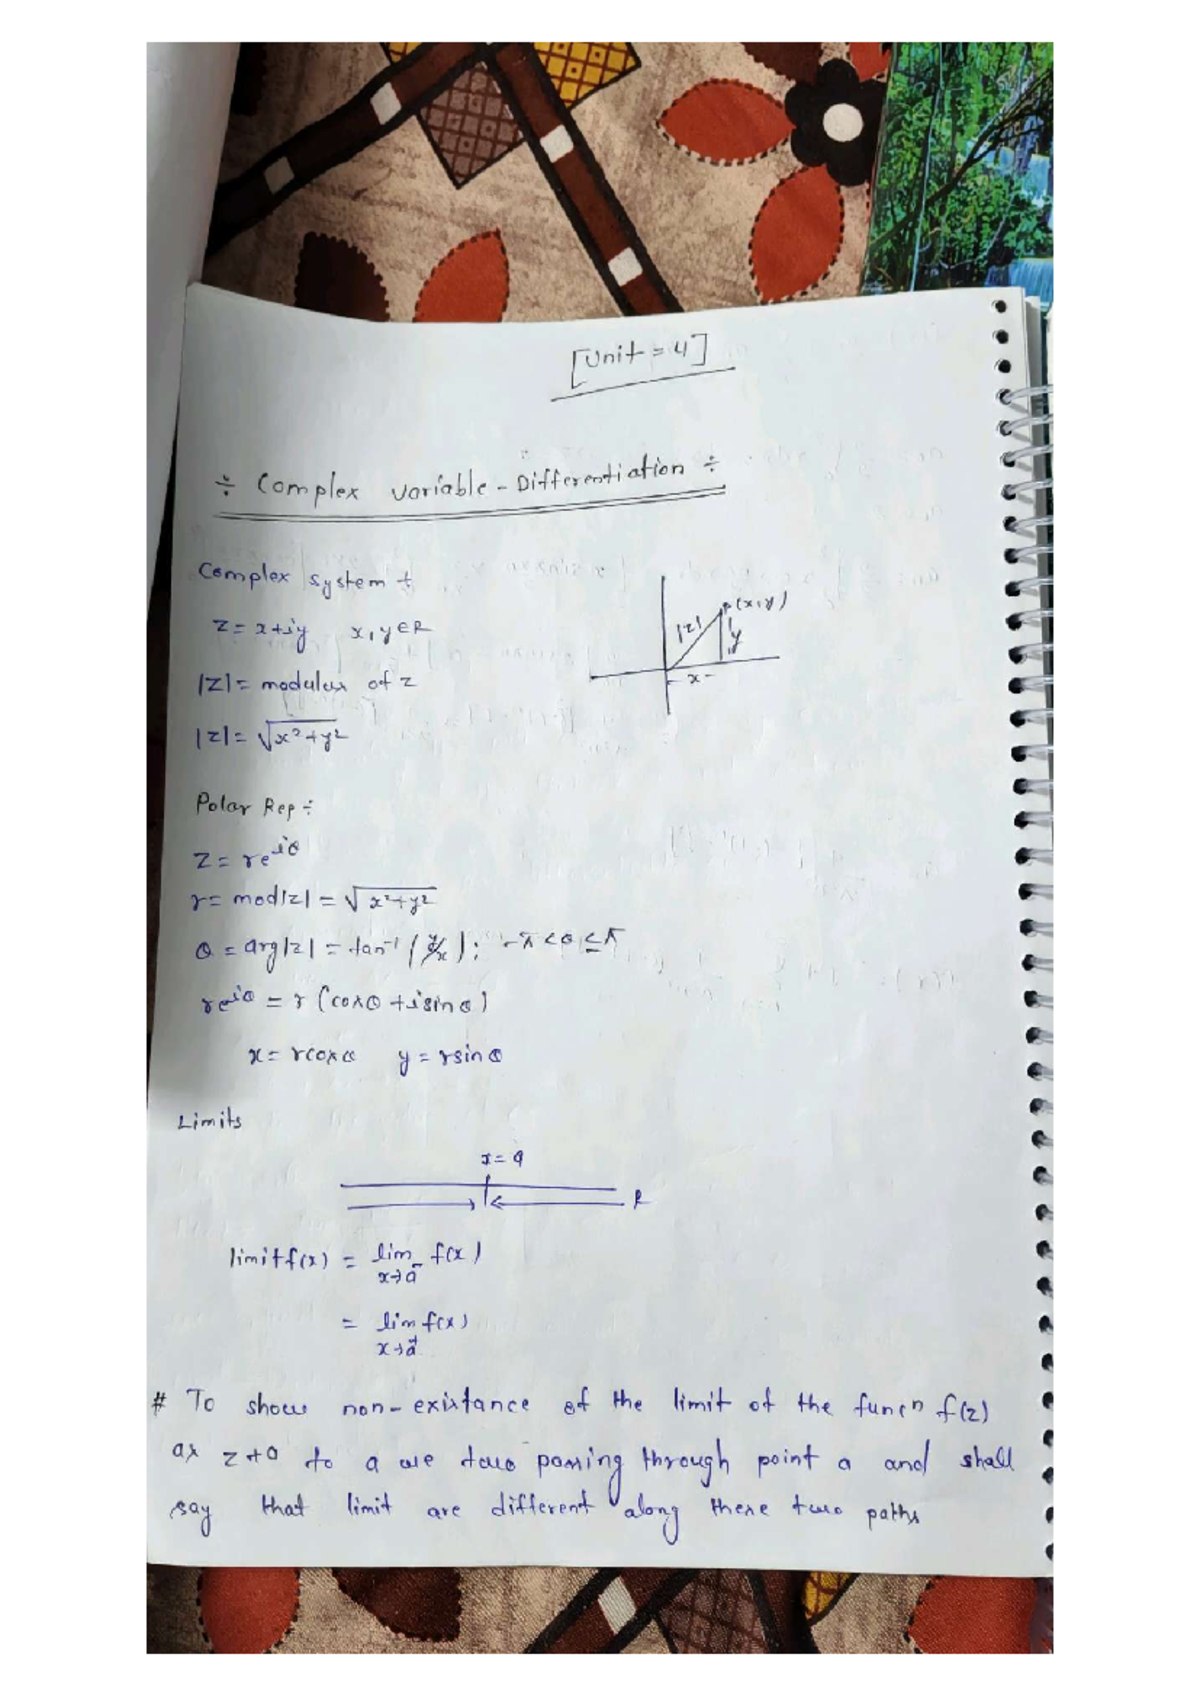 [Unit = 4]
÷ Complex variable - Differentiation ÷
Complex system ÷
z = x+iy x, y ∈ R
|z| = modulus of z
|z| = √x²+y²
P(x,y)
|z|
y
x
Polar Rep ÷
z = re^iθ
r = mod|z| = √x²+y²
θ = arg|z| = tan⁻¹(y/x); -π<θ≤π
re^iθ = r(cosθ + isinθ)
x = rcosθ y = rsinθ
Limits
x = a
R
limit f(x) = lim x→a⁻ f(x)
= lim x→a⁺ f(x)
# To show non-existance of the limit of the funcn f(z)
as z→a to a we two passing through point a and shall
say that limit are different along these two paths